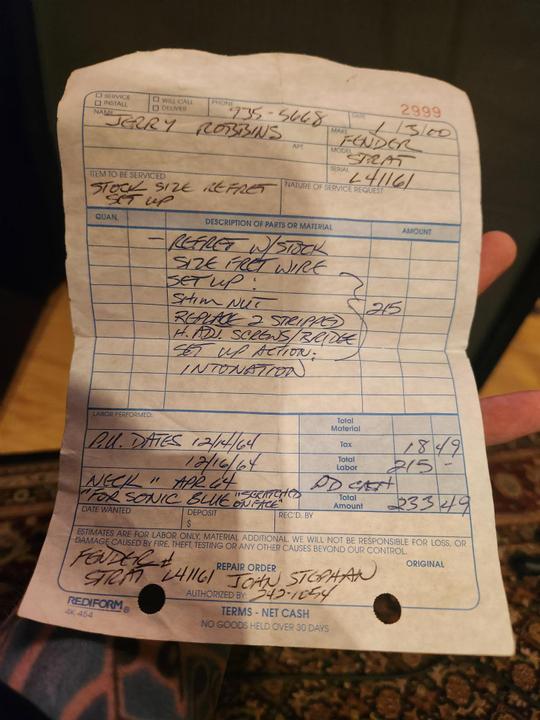 SERVICE
INSTALL
WILL CALL
DELIVER
PHONE 735-5668
DATE 1/3/00
2999
NAME JERRY ROBBINS
APT.
MAKE FENDER
MODEL STRAT
SERIAL L41161
ITEM TO BE SERVICED
STOCK SIZE REFRET
SET UP
NATURE OF SERVICE REQUEST
QUAN. DESCRIPTION OF PARTS OR MATERIAL AMOUNT
- REFRET W/STOCK
SIZE FRET WIRE
SET UP:
SHIM NUT
215
REPLACE 2 STRIPPED
H. ADJ. SCREWS/BRIDGE
SET UP ACTION:
INTONATION
LABOR PERFORMED:
P.U. DATES 12/14/64
12/16/64
NECK " APR 64
"FOR SONIC BLUE" "SCRATCHED
ON FACE"
Total Material
Tax 18 49
Total Labor 215 -
PD CASH
Total Amount 233 49
DATE WANTED
DEPOSIT
$
REC'D. BY
ESTIMATES ARE FOR LABOR ONLY, MATERIAL ADDITIONAL. WE WILL NOT BE RESPONSIBLE FOR LOSS, OR
DAMAGE CAUSED BY FIRE, THEFT, TESTING OR ANY OTHER CAUSES BEYOND OUR CONTROL.
FENDER #
STRAT L41161
REPAIR ORDER
ORIGINAL
JOHN STEPHAN
AUTHORIZED BY: 242-1054
REDIFORM®
4K 454
TERMS - NET CASH
NO GOODS HELD OVER 30 DAYS